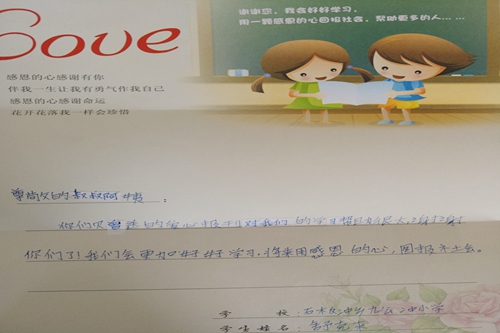 谢谢您,我会好好学习,
用一颗感恩的心回报社会,帮助更多的人……
Love
感恩的心感谢有你
伴我一生让我有勇气作我自己
感恩的心感谢命运
花开花落我一样会珍惜
尊敬的叔叔阿姨:
你们 的爱心 对我们的学习 谢谢
你们了!我们会更加好好学习,将来用感恩的心,回报社会。
学 校:石木 中 小学
学生姓名: